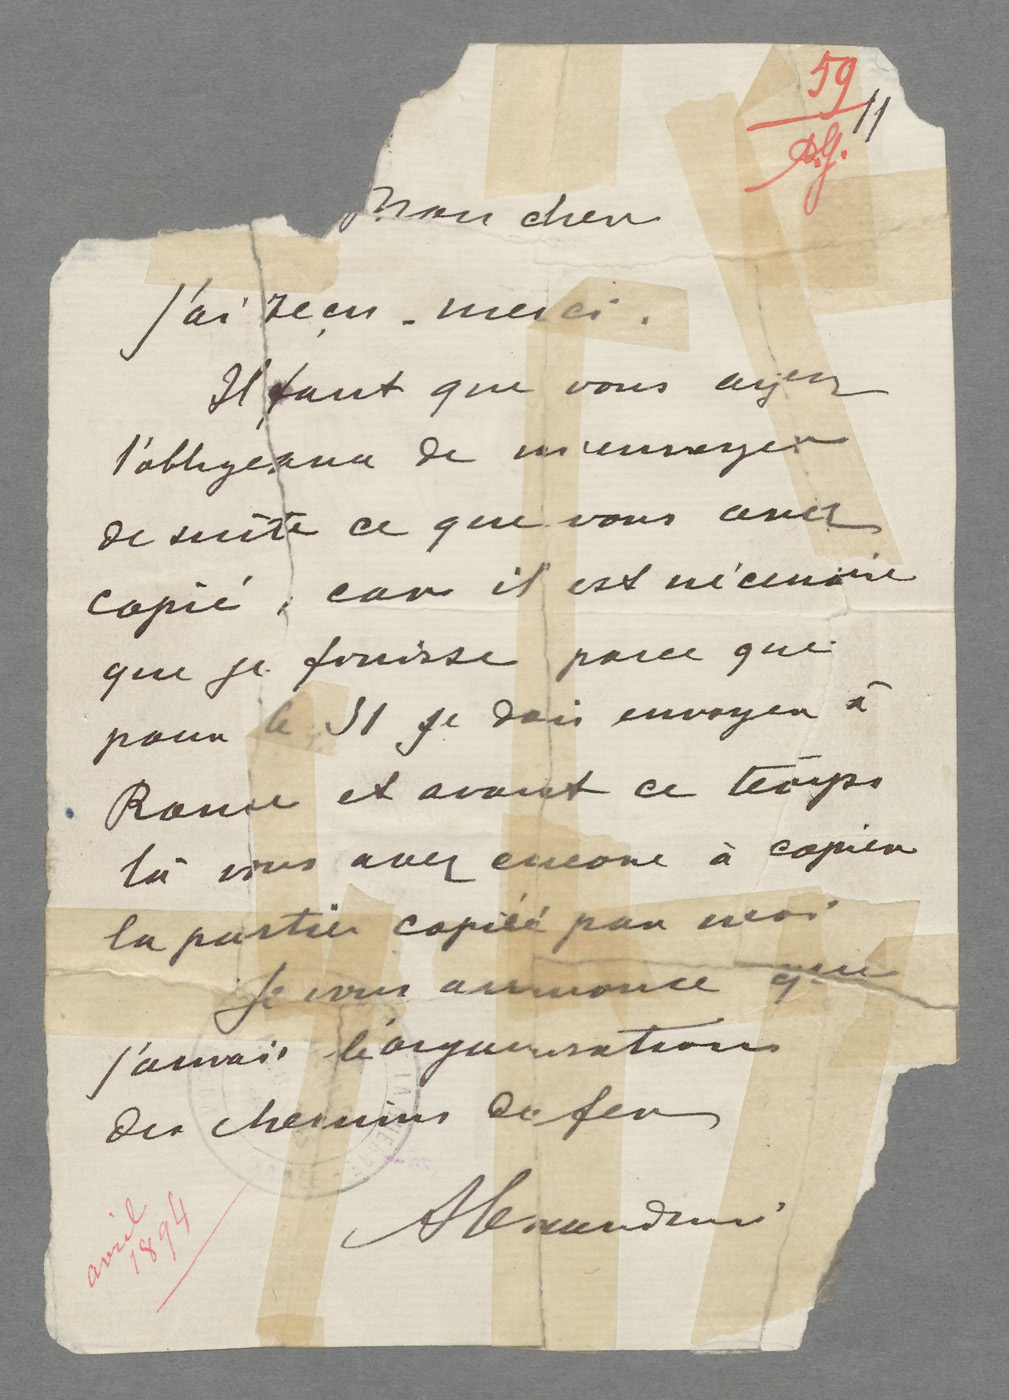 59
11
D.G.
Mon cher
J'ai reçu - merci.
Il faut que vous ayez
l'obligeance de m'envoyer
de suite ce que vous avez
copié, car il est nécessaire
que je finisse parce que
pour le 31 je dois envoyer à
Rome et avant ce temps
là vous avez encore à copier
la partie copiée par moi
Je vous annonce que
j'aurais l'organisation
des chemins de fer
Alexandrine
avril
1894